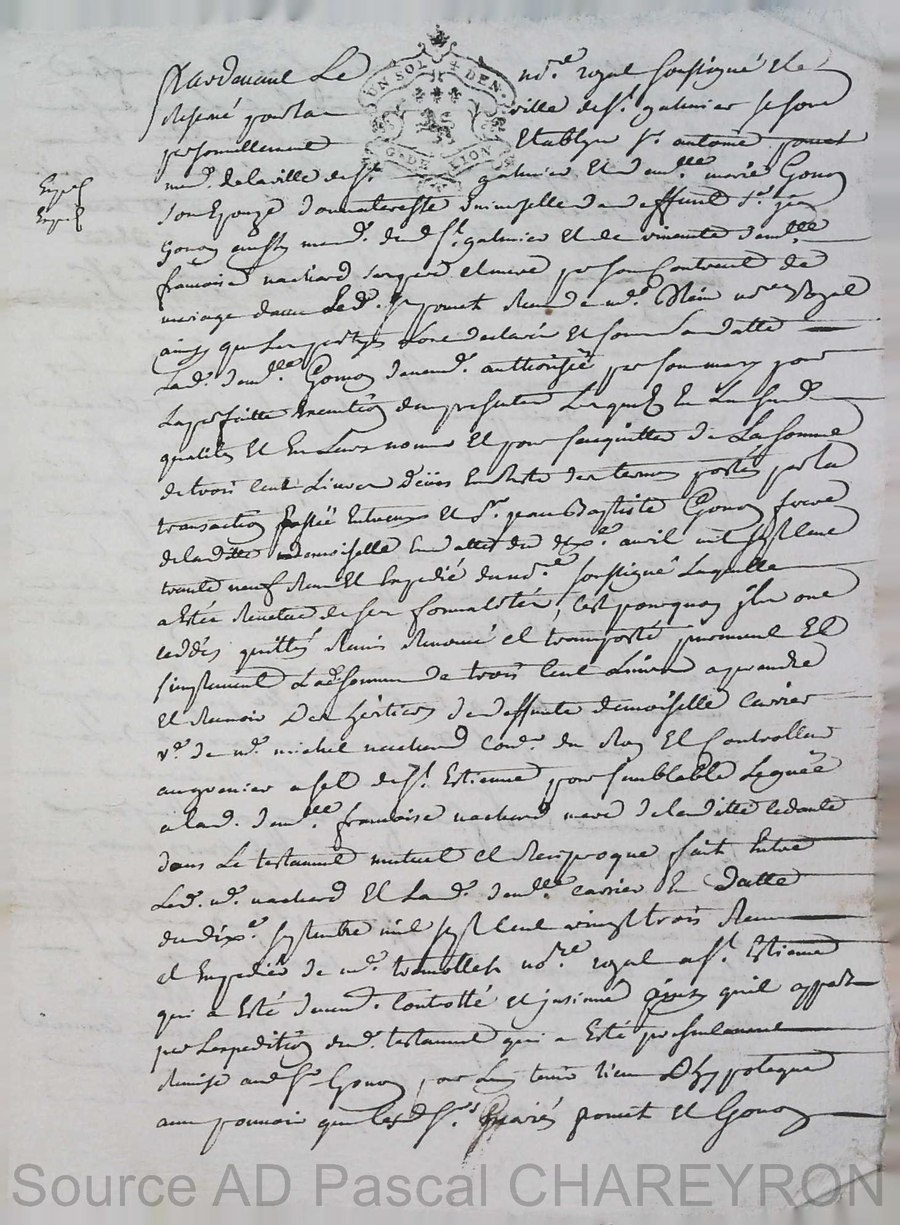 UN SOL DEN
G. DE LION
Pardevant Le no.re royal soussigné et le
reservé pour la ville de st. galmier se sont
personnellement Etablys sr. antoine pomet
md. de la ville de st. galmier et dam.lle marie Gonoy
Expe
Expe
son Epouze donnateresse universelle de deffunt sr. jean
Gonoy aussy md. dud. st. galmier et de vivante dam.lle
françoise nachard ses pere et mere par son Contract de
mariage avec Led. sr. pomet Receu de me. no.re Royal
ainsy que Les partyes L'ont declaré et sous sa datte
Lad. dam.lle Gonoy duemt. authorisée par son mary pour
La parfaitte Execution des presentes Lesquels En Les susd.
qualités Et En Leurs noms Et pour s'acquitter de La somme
de trois Cent Livres En reste des termes portés par la
transaction passée Entreux et sr. jean Baptiste Gonoy frere
de laditte demoiselle En datte du dixe. avril mil sept Cent
trente neuf Receu Et Expedié du no.re soussigné Laquelle
a Esté Revetue de ses formalités, C'est pourquoy ils ont
ceddés quittés Remis Renoncé et transporté purement Et
simplement Lad. somme de trois Cent Livres a prendre
et Recevoir Des heritiers de deffunte demoiselle Carrier
ve. de me. michel nachard Conr. du Roy Et Controlleur
au grenier a sel de st. Estienne pour semblable Leguée
a Lad. dam.lle françoise nachard mere de laditte Cedante
dans Le testament mutuel et Reciproque fait Entre
Led. me. nachard Et Lad. dam.lle Carrier En Datte
du dixe. septembre mil sept Cent vingt trois Receu
et Expedié de me. tremollet no.re royal a st. Estienne
qui a Esté duemt. Controllé et insinué qu'il appert
par L'expedition dud. testament qui a Esté presentement
Remise aud. sr. Gonoy pour Luy tenir Lieu D'hypoteque
au pouvoir que Lesd. srs. mariés pomet et Gonoy
Source AD Pascal CHAREYRON